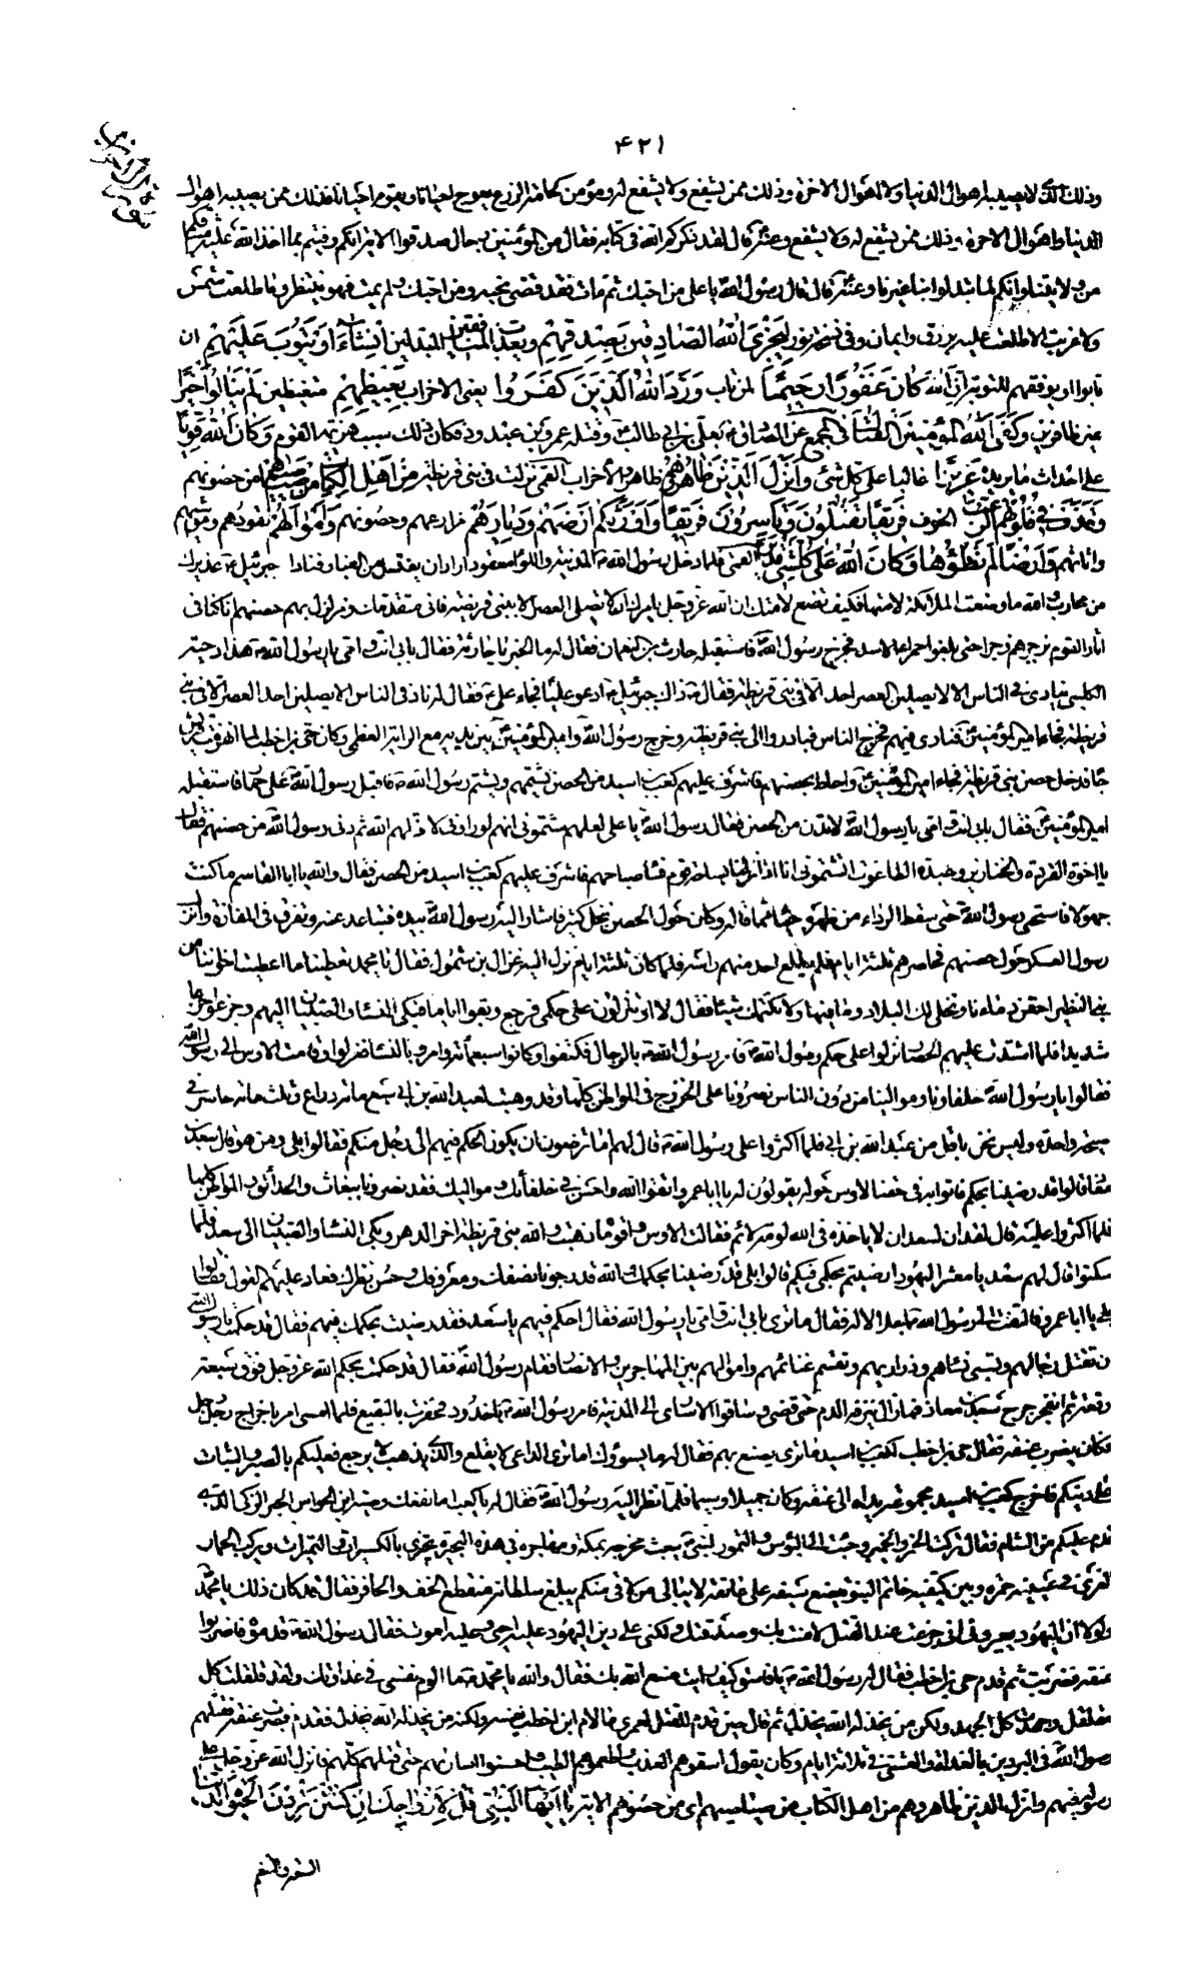 ۴۲۱
وذلك الذى لا يصيبه اهوال الدنيا ولا اهوال الاخرة وذلك ممن يشفع ولا يشفع له ومؤمن كخامة الزرع يعوج احيانا ويقوم احيانا فذلك ممن يصيبه اهوال
الدنيا واهوال الاخرة وذلك ممن يشفع له ولا يشفع وعنه قال لقد ذكركم الله فى كتابه فقال من المؤمنين رجال صدقوا الاية انكم وفيتم بما اخذ الله عليه ميثاقكم
من ولايتنا وانكم لم تبدلوا بنا غيرنا وعنه قال قال رسول الله يا على من احبك ثم مات فقد قضى نحبه ومن احبك ولم يمت فهو ينتظر وما طلعت شمس
ولا غربت الا طلعت عليه برزق وايمان وفى نسخة نور ليجزى الله الصادقين بصدقهم ويعذب المنافقين المبدلين ان شاء او يتوب عليهم ان
تابوا او يوفقهم للتوبة ان الله كان غفورا رحيما لمن تاب ورد الله الذين كفروا يعنى الاحزاب بغيظهم متغيظين لم ينالوا خيرا
غير ظافرين وكفى الله المؤمنين القتال فى المجمع عن الصادق بعلى بن ابى طالب وقتله عمرو بن عبد ود فكان ذلك سبب هزيمة القوم وكان الله قويا
على احداث ما يريده عزيزا غالبا على كل شئ وانزل الذين ظاهروهم ظاهروا الاحزاب القمى نزلت فى بنى قريظة من اهل الكتاب من صياصيهم من حصونهم
وقذف فى قلوبهم الرعب الخوف فريقا تقتلون وتاسرون فريقا واورثكم ارضهم وديارهم مزارعهم وحصونهم واموالهم نقودهم ومواشيهم
واثاثهم وارضا لم تطؤها وكان الله على كل شئ قديرا القمى فلما دخل رسول الله المدينة واللواء معقود اراد ان يغتسل من الغبار فناداه جبرئيل عذيرك
من محارب والله ما وضعت الملائكة لامتها فكيف تضع لامتك ان الله عز وجل يامرك ان لا تصلى العصر الا ببنى قريظة فانى متقدمك ومزلزل بهم حصنهم انا كنا فى
اثار القوم نزجرهم زجرا حتى بلغوا حمراء الاسد فخرج رسول الله فاستقبله حارثة بن النعمان فقال له ما الخبر يا حارثة فقال بابى انت وامى يا رسول الله هذا دحية
الكلبى ينادى فى الناس الا لا يصلين العصر احد الا فى بنى قريظة فقال ذاك جبرئيل ادعو عليا فجاء على فقال له ناد فى الناس لا يصلين احد العصر الا فى بنى
قريظة فجاء امير المؤمنين فنادى فيهم فخرج الناس فبادروا الى بنى قريظة وخرج رسول الله وامير المؤمنين بين يديه مع الراية العظمى وكان حى بن اخطب لما انهزمت قريش
جاء فدخل حصن بنى قريظة فجاء امير المؤمنين واحاط بحصنهم فاشرف عليهم كعب بن اسيد من الحصن يشتمهم ويشتم رسول الله فاقبل رسول الله على حمار فاستقبله
امير المؤمنين فقال بابى انت وامى يا رسول الله لا تدن من الحصن فقال رسول الله يا على لعلهم شتمونى انهم لو راونى لاذلهم الله ثم دنى رسول الله من حصنهم فقال
يا اخوة القردة والخنازير وعبدة الطاغوت اتشتمونى انا اذا نزلنا بساحة قوم فساء صباحهم فاشرف عليهم كعب بن اسيد من الحصن فقال والله يا ابا القاسم ما كنت
جهولا فاستحى رسول الله حتى سقط الرداء من ظهره حياء مما قاله وكان حول الحصن نخل كثير فاشار اليه رسول الله بيده فتباعد عنه وتفرق فى المفازة وانزل
رسول الله العسكر حول حصنهم فحاصرهم ثلثة ايام فلم يطلع احد منهم راسه فلما كان بعد ثلثة ايام نزل اليه غزال بن شمول فقال يا محمد تعطينا ما اعطيت اخواننا من
بنى النضير احقن دماءنا ونخلى لك البلاد وما فيها ولا نكتمك شيئا فقال لا او تنزلون على حكمى فرجع وبقوا اياما فبكى النساء والصبيان اليهم وجزعوا جزعا
شديدا فلما اشتد عليهم الحصار نزلوا على حكم رسول الله فامر رسول الله بالرجال فكتفوا وكانوا سبعمائة وامر بالنساء فعزلوا وقامت الاوس الى رسول الله
فقالوا يا رسول الله حلفاؤنا وموالينا من دون الناس نصرونا على الخزرج فى المواطن كلها وقد وهبت لعبد الله بن ابى سبعمائة دراع وثلث مائة حاسر فى
صبيحة واحدة وليس نحن باقل من عبد الله بن ابى فلما اكثروا على رسول الله قال لهم اما ترضون ان يكون الحكم فيهم الى رجل منكم فقالوا بلى ومن هو قال سعد بن
معاذ قالوا قد رضينا بحكمه فاتوا به فى محفة والاوس حوله يقولون له يا ابا عمرو اتق الله واحسن فى حلفائك ومواليك فقد نصرونا ببعاث والحدائق والمواطن كلها
فلما اكثروا عليه قال لقد ان لسعد ان لا ياخذه فى الله لومة لائم فقالت الاوس واقوماه ذهبت والله بنو قريظة اخر الدهر وبكى النساء والصبيان الى سعد فلما
سكتوا قال لهم سعد يا معشر اليهود ارضيتم بحكمى فيكم قالوا بلى قد رضينا بحكمك والله قد رجونا نصفك ومعروفك وحسن نظرك فعاد عليهم القول فقالوا
بلى يا ابا عمرو فالتفت الى رسول الله اجلالا له فقال ما ترى بابى انت وامى يا رسول الله فقال احكم فيهم يا سعد فقد رضيت بحكمك فيهم فقال قد حكمت يا رسول الله
ان تقتل رجالهم وتسبى نساءهم وذراريهم وتقسم غنائمهم واموالهم بين المهاجرين والانصار فقام رسول الله فقال قد حكمت بحكم الله عز وجل فوق سبعة
ارقعة ثم انفجر جرح سعد بن معاذ فما زال ينزفه الدم حتى قضى وساقوا الاسارى الى المدينة فامر رسول الله باخدود فحفرت بالبقيع فلما امسى امر باخراج رجل رجل
فكان يضرب عنقه فقال حى بن اخطب لكعب بن اسيد ما ترى يصنع بهم فقال له ما يسوؤك اما ترى الداعى لا يقلع والذى يذهب لا يرجع فعليكم بالصبر والثبات
على دينكم فاخرج كعب بن اسيد مجموعة يداه الى عنقه وكان جميلا وسيما فلما نظر اليه رسول الله فقال له يا كعب اما نفعك وصية ابن الحواس الحبر الزكى الذى
قدم عليكم من الشام فقال تركت الخمر والخمير وجئت الى البؤس والتمور لنبى يبعث مخرجه بمكة ومهاجره فى هذه البحيرة يجتزى بالكسيرات والتميرات ويركب الحمار
العرى فى عينيه حمرة وبين كتفيه خاتم النبوة يضع سيفه على عاتقه لا يبالى من لاقى منكم يبلغ سلطانه منقطع الخف والحافر فقال قد كان ذلك يا محمد
ولولا ان اليهود يعيرونى انى جزعت عند القتل لامنت بك وصدقتك ولكنى على دين اليهود عليه احيى وعليه اموت فقال رسول الله قدموه فاضربوا
عنقه فضربت ثم قدم حى بن اخطب فقال له رسول الله يا فاسق كيف رايت صنع الله بك فقال والله يا محمد ما الوم نفسى فى عداوتك ولقد قلقلت كل
مقلقل وجهدت كل الجهد ولكن من يخذله الله يخذل ثم قال حين قدم للقتل لعمرى ما لام ابن اخطب نفسه ولكنه من يخذل الله يخذل فقدم وضرب عنقه فقتلهم
رسول الله فى البردين بالغداة والعشى فى ثلاثة ايام وكان يقول اسقوهم العذب واطعموهم الطيب واحسنوا اسارهم حتى قتلهم كلهم فانزل الله عز وجل على
رسوله فيهم وانزل الذين ظاهروهم من اهل الكتاب من صياصيهم اى من حصونهم الاية يا ايها النبى قل لازواجك ان كنتن تردن الحيوة الدنيا
السعة والتنعم